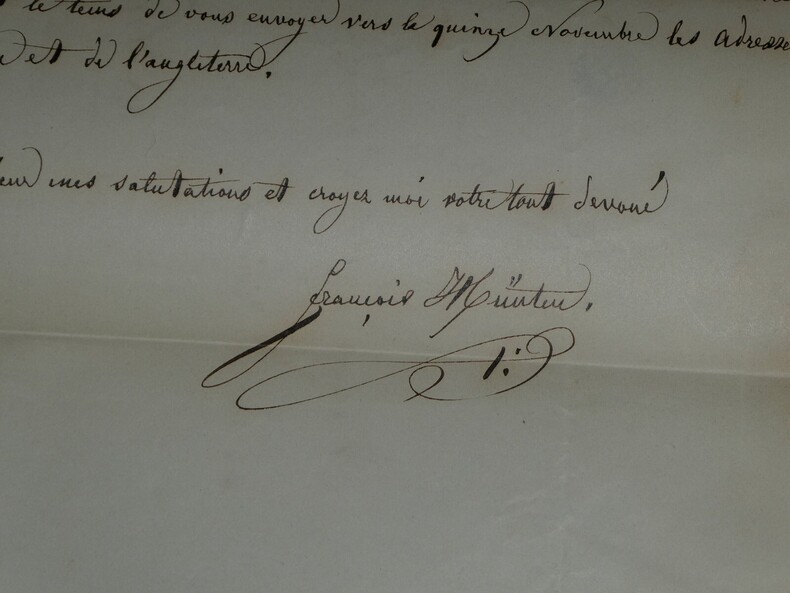 le tems de vous envoyer vers le quinze Novembre les adresse
e et de l'angleterre.
eur mes salutations et croyez moi votre tout devoué
françois Hünten.